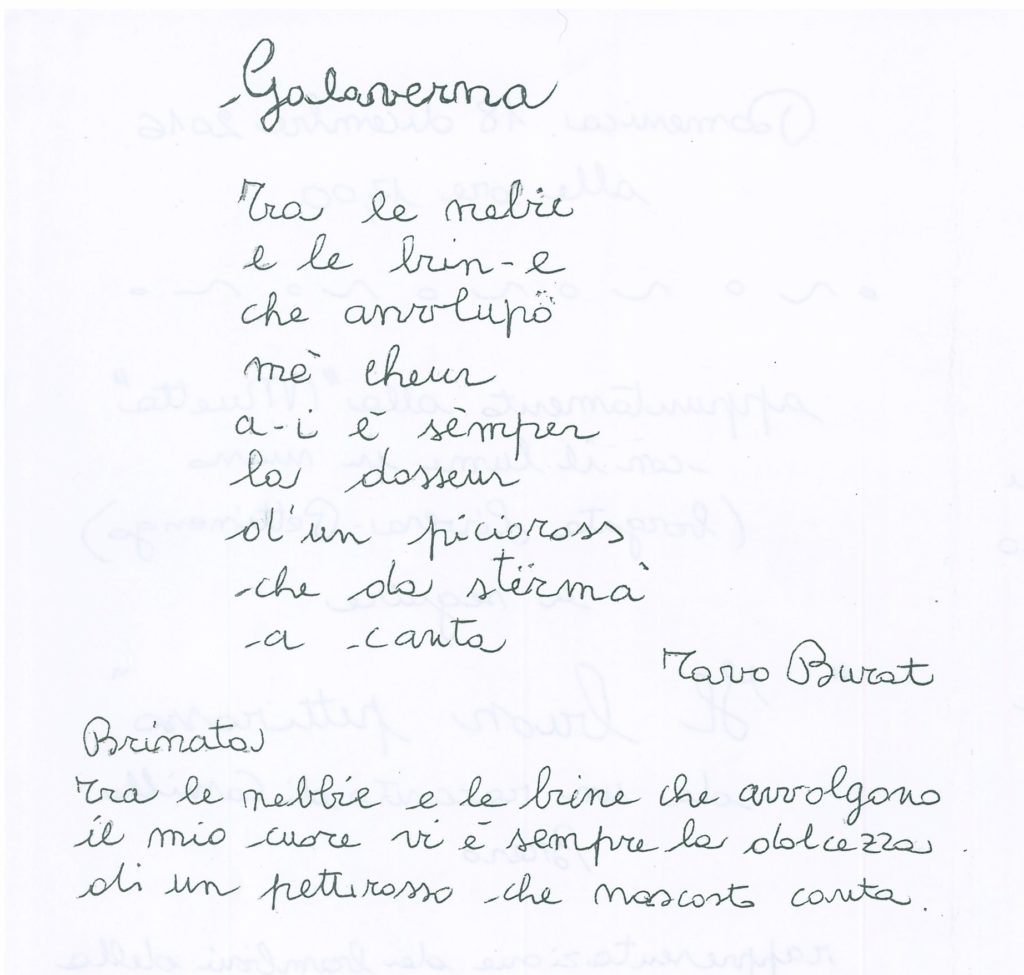 Galaverna
Tra le nebie
e le brin-e
che anvolupo
mè cheur
a-i è sèmper
la dosseur
d'un picioross
che da stërmà
a canta
Tavo Burat
Brinata
Tra le nebbie e le brine che avvolgono
il mio cuore vi è sempre la dolcezza
di un pettirosso che nascosto canta.